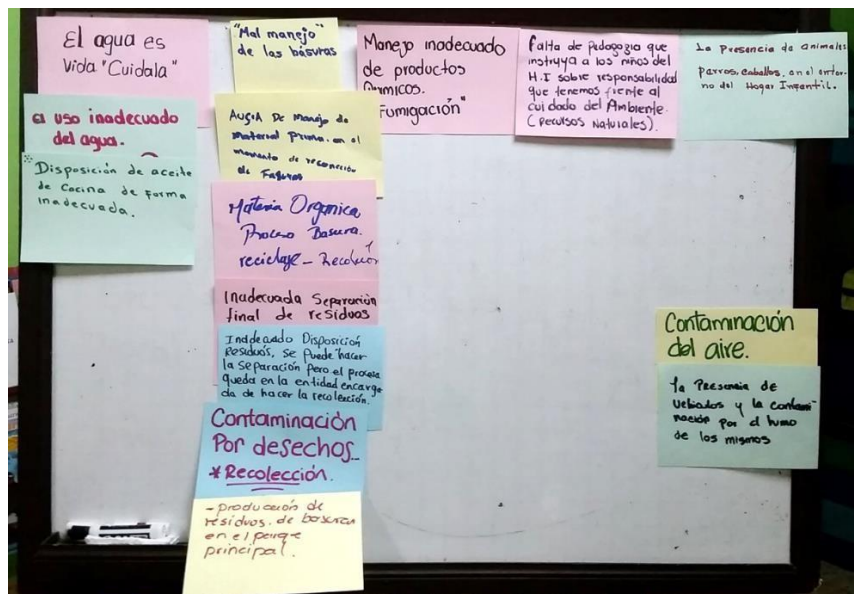 El agua es
Vida "Cuidala"
El uso inadecuado
del agua.
* Disposición de aceite
de Cocina de forma
inadecuada.
"Mal manejo"
de las básuras
De manejo de
material en el
momento de
de
Materia Organica
Proceso Basura.
reciclaje -
Inadecuada Separación
final de residuos
Inadecuado Disposición
Residuos, se Puede hacer
la Separación Pero el proceso
queda en la entidad encarga
da de hacer la recolección.
Contaminación
Por desechos...
* Recolección.
- producción de
residuos. de basuras
en el parque
principal.
Manejo inadecuado
de productos
Quimicos.
"Fumigación"
Falta de pedagogia que
instruya a los niños del
H.I sobre responsabilidad
que tenemos frente al
cuidado del Ambiente.
(recursos Naturales).
La Presencia de animales
Perros, caballos, en el entor-
no del Hogar Infantil.
Contaminación
del aire.
La Presencia de
Vehiculos y la contami
nación por el humo
de los mismos